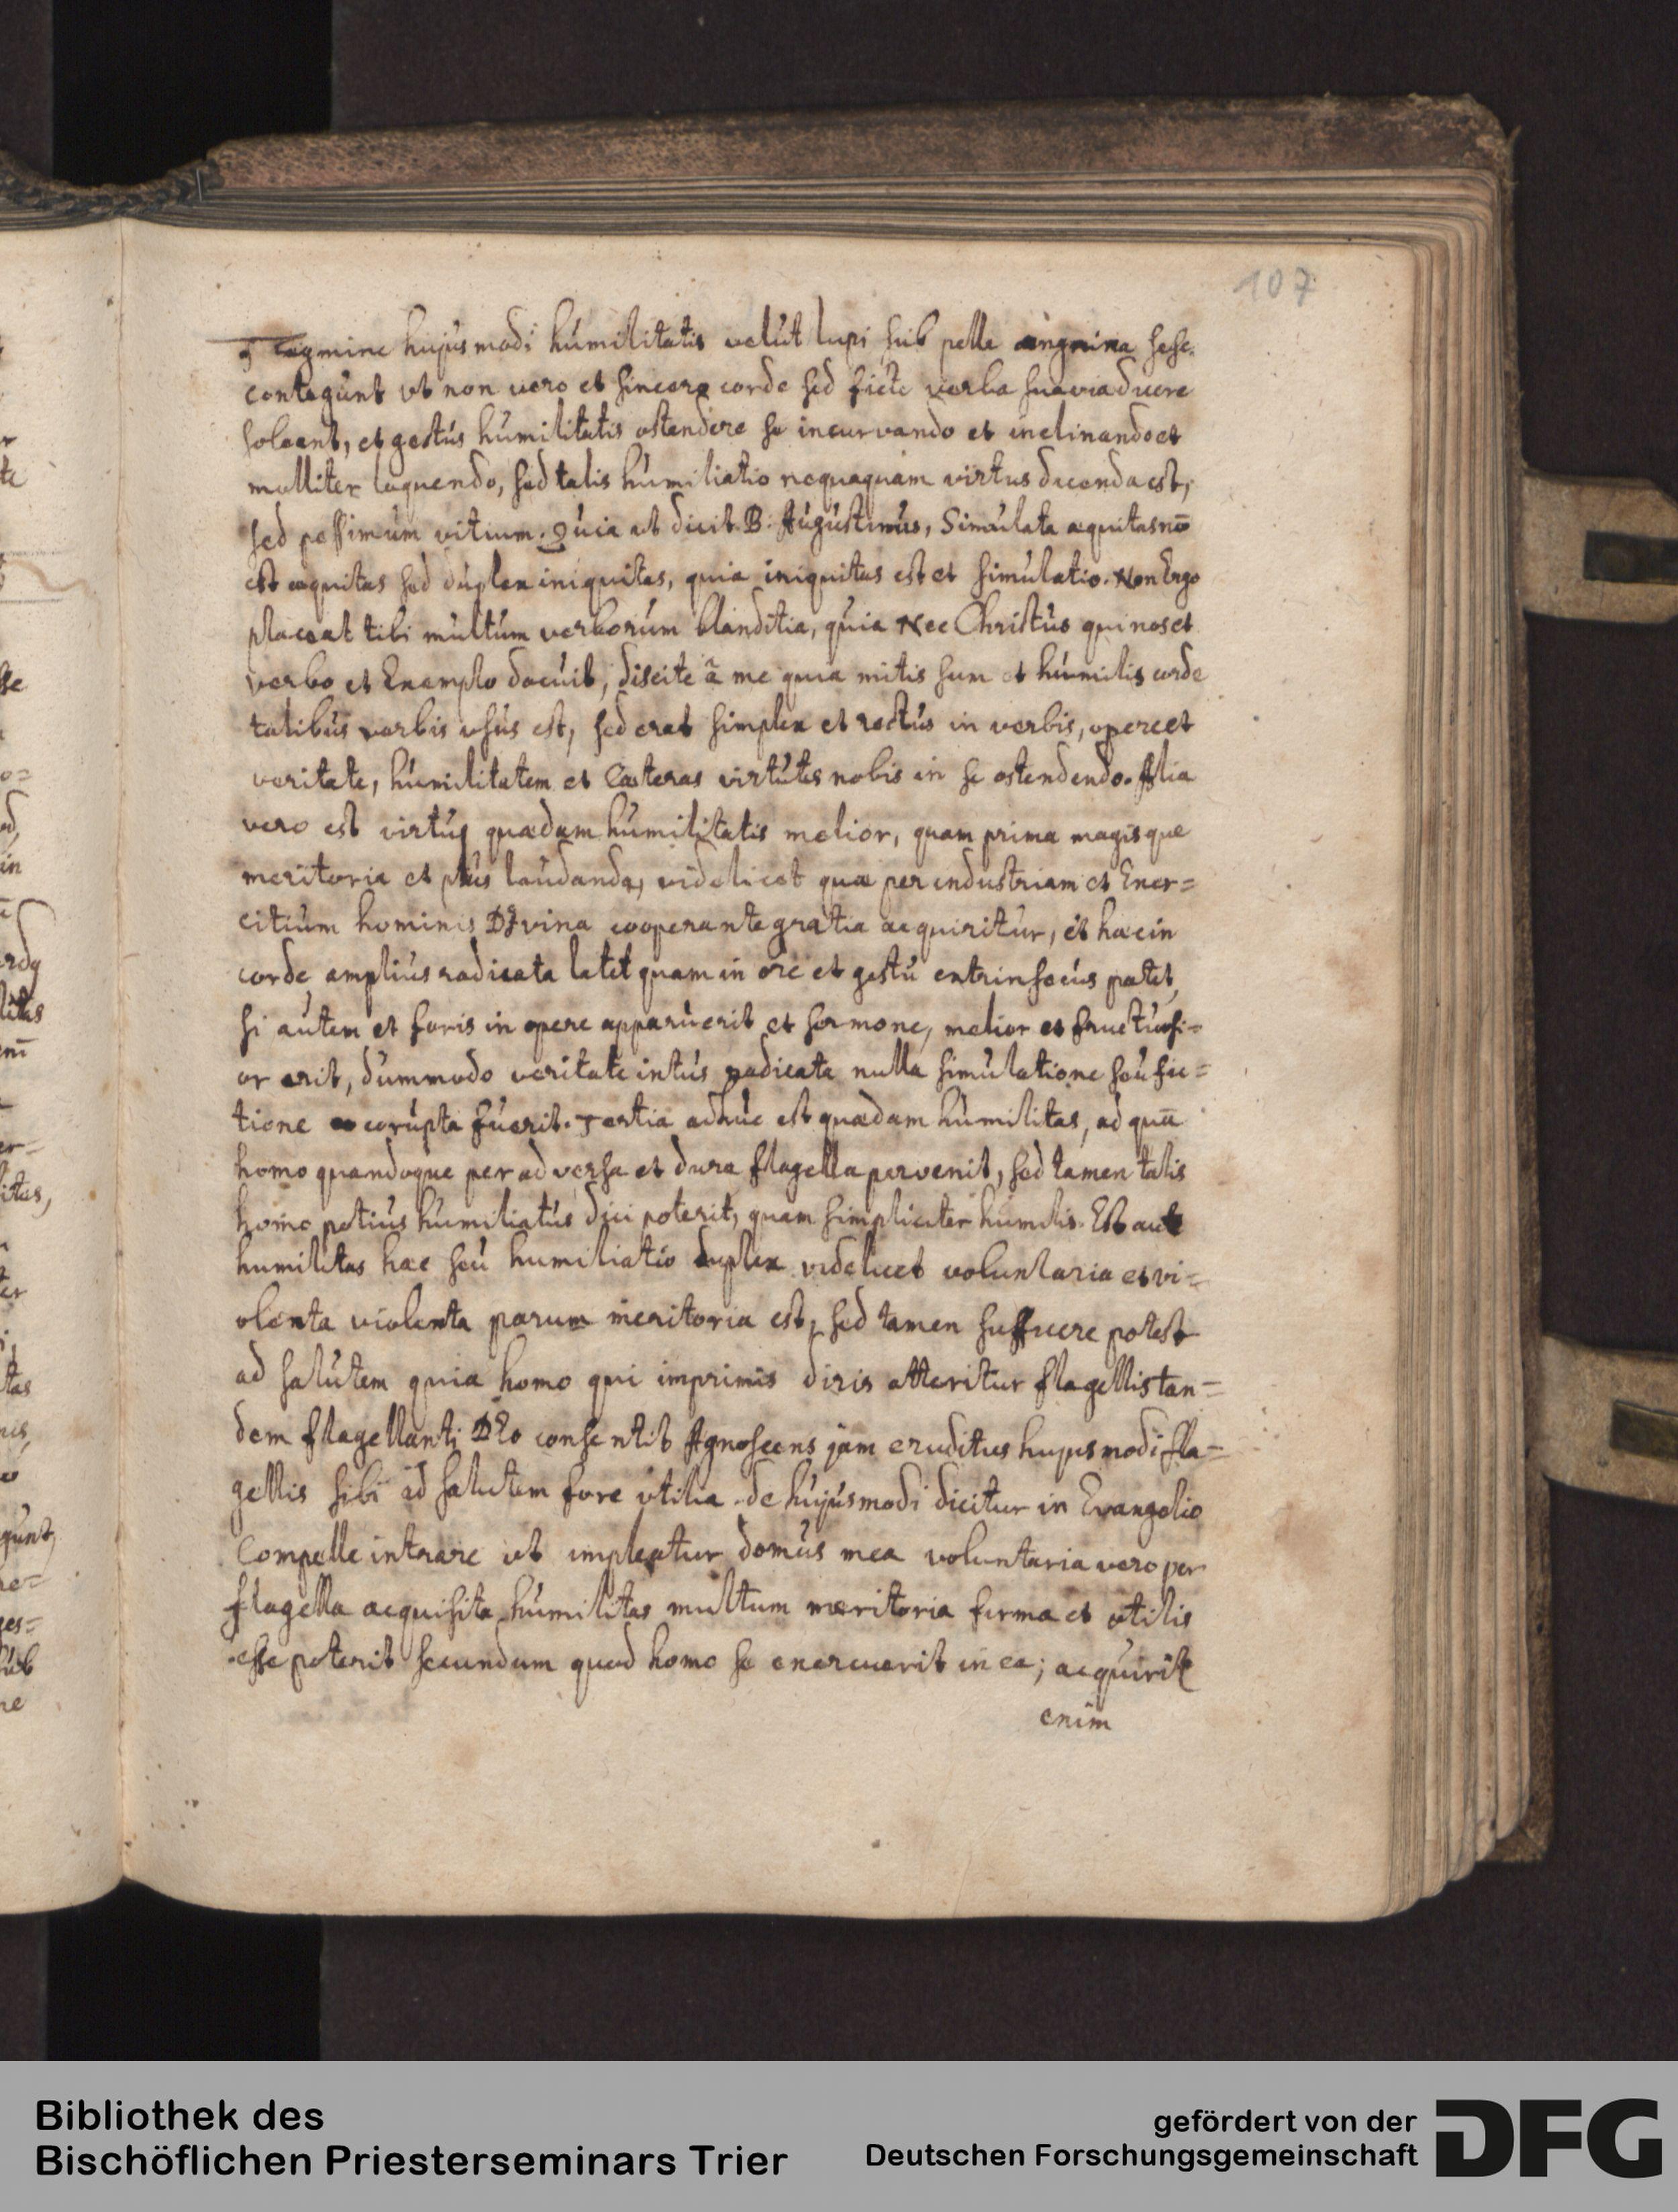 107
Tegmine hujusmodi húmilitatis velút lupi súb pelle angnina sese
contegúnt vt non vero et sincero corde sed ficte verba suavia ducere
soleant, et gestús húmilitatis ostendere se incurvando et inclinando et
molliter loquendo, sed talis húmiliatio nequaquam virtus dicenda est,
sed pessimúm vitium. Quia ut dicit B: Augústinús, Simúlata æquitas nō
est æquitas sed dúplex iniquitas, quia iniquitas est et simúlatio. Non Ergo
placeat tibi múltúm verborúm blanditia, qúia Nec Christús qui nos et
verbo et Exemplo docúit, discite ã me quia mitis sum et húmilis corde
talibús verbis usús est, sed erat simplex et rectús in verbis, opere et
veritate, húmilitatem et Cæteras virtútes nobis in se ostendendo. Alia
vero est virtús quædam húmilitatis melior, quam prima magisque
meritoria et plús laúdanda, videlicet quæ per industriam et Exer=
citium hominis DIvina cooperante gratia acquiritur, et hæc in
corde ampliús radicata latet quam in ore et gestú extrinsecús patet,
si aútem et foris in opere apparúerit et sermone, melior et fructúosi=
or erit, dummodo veritate intús radicata nulla simúlatione seú fic=
tione corúpta fúerit. Tertia adhúc est quædam húmilitas, ad quā
homo quandoque per adversa et dura flagella pervenit, sed tamen talis
homo potiús húmiliatús dici poterit, quam simpliciter humilis. Est aute
humilitas hæc seú humiliatio duplex videlicet voluntaria et vi=
olenta violenta parum meritoria est, sed tamen sufficere potest
ad salútem quia homo qui imprimis diris atteritur flagellis tan=
dem flagellanti DEo consentit Agnoscens jam eruditus hujusmodi fla=
gellis sibi ad salutem fore vtilia. de hujúsmodi dicitur in Evangelio
Compelle intrare ut impleatur domús mea voluntaria vero per
flagella acquisita húmilitas multum meritoria firma et utilis
esse poterit secundum quod homo se exercuerit in ea; acquirit
enim
Bibliothek des
Bischöflichen Priesterseminars Trier
gefördert von der
Deutschen Forschungsgemeinschaft
DFG